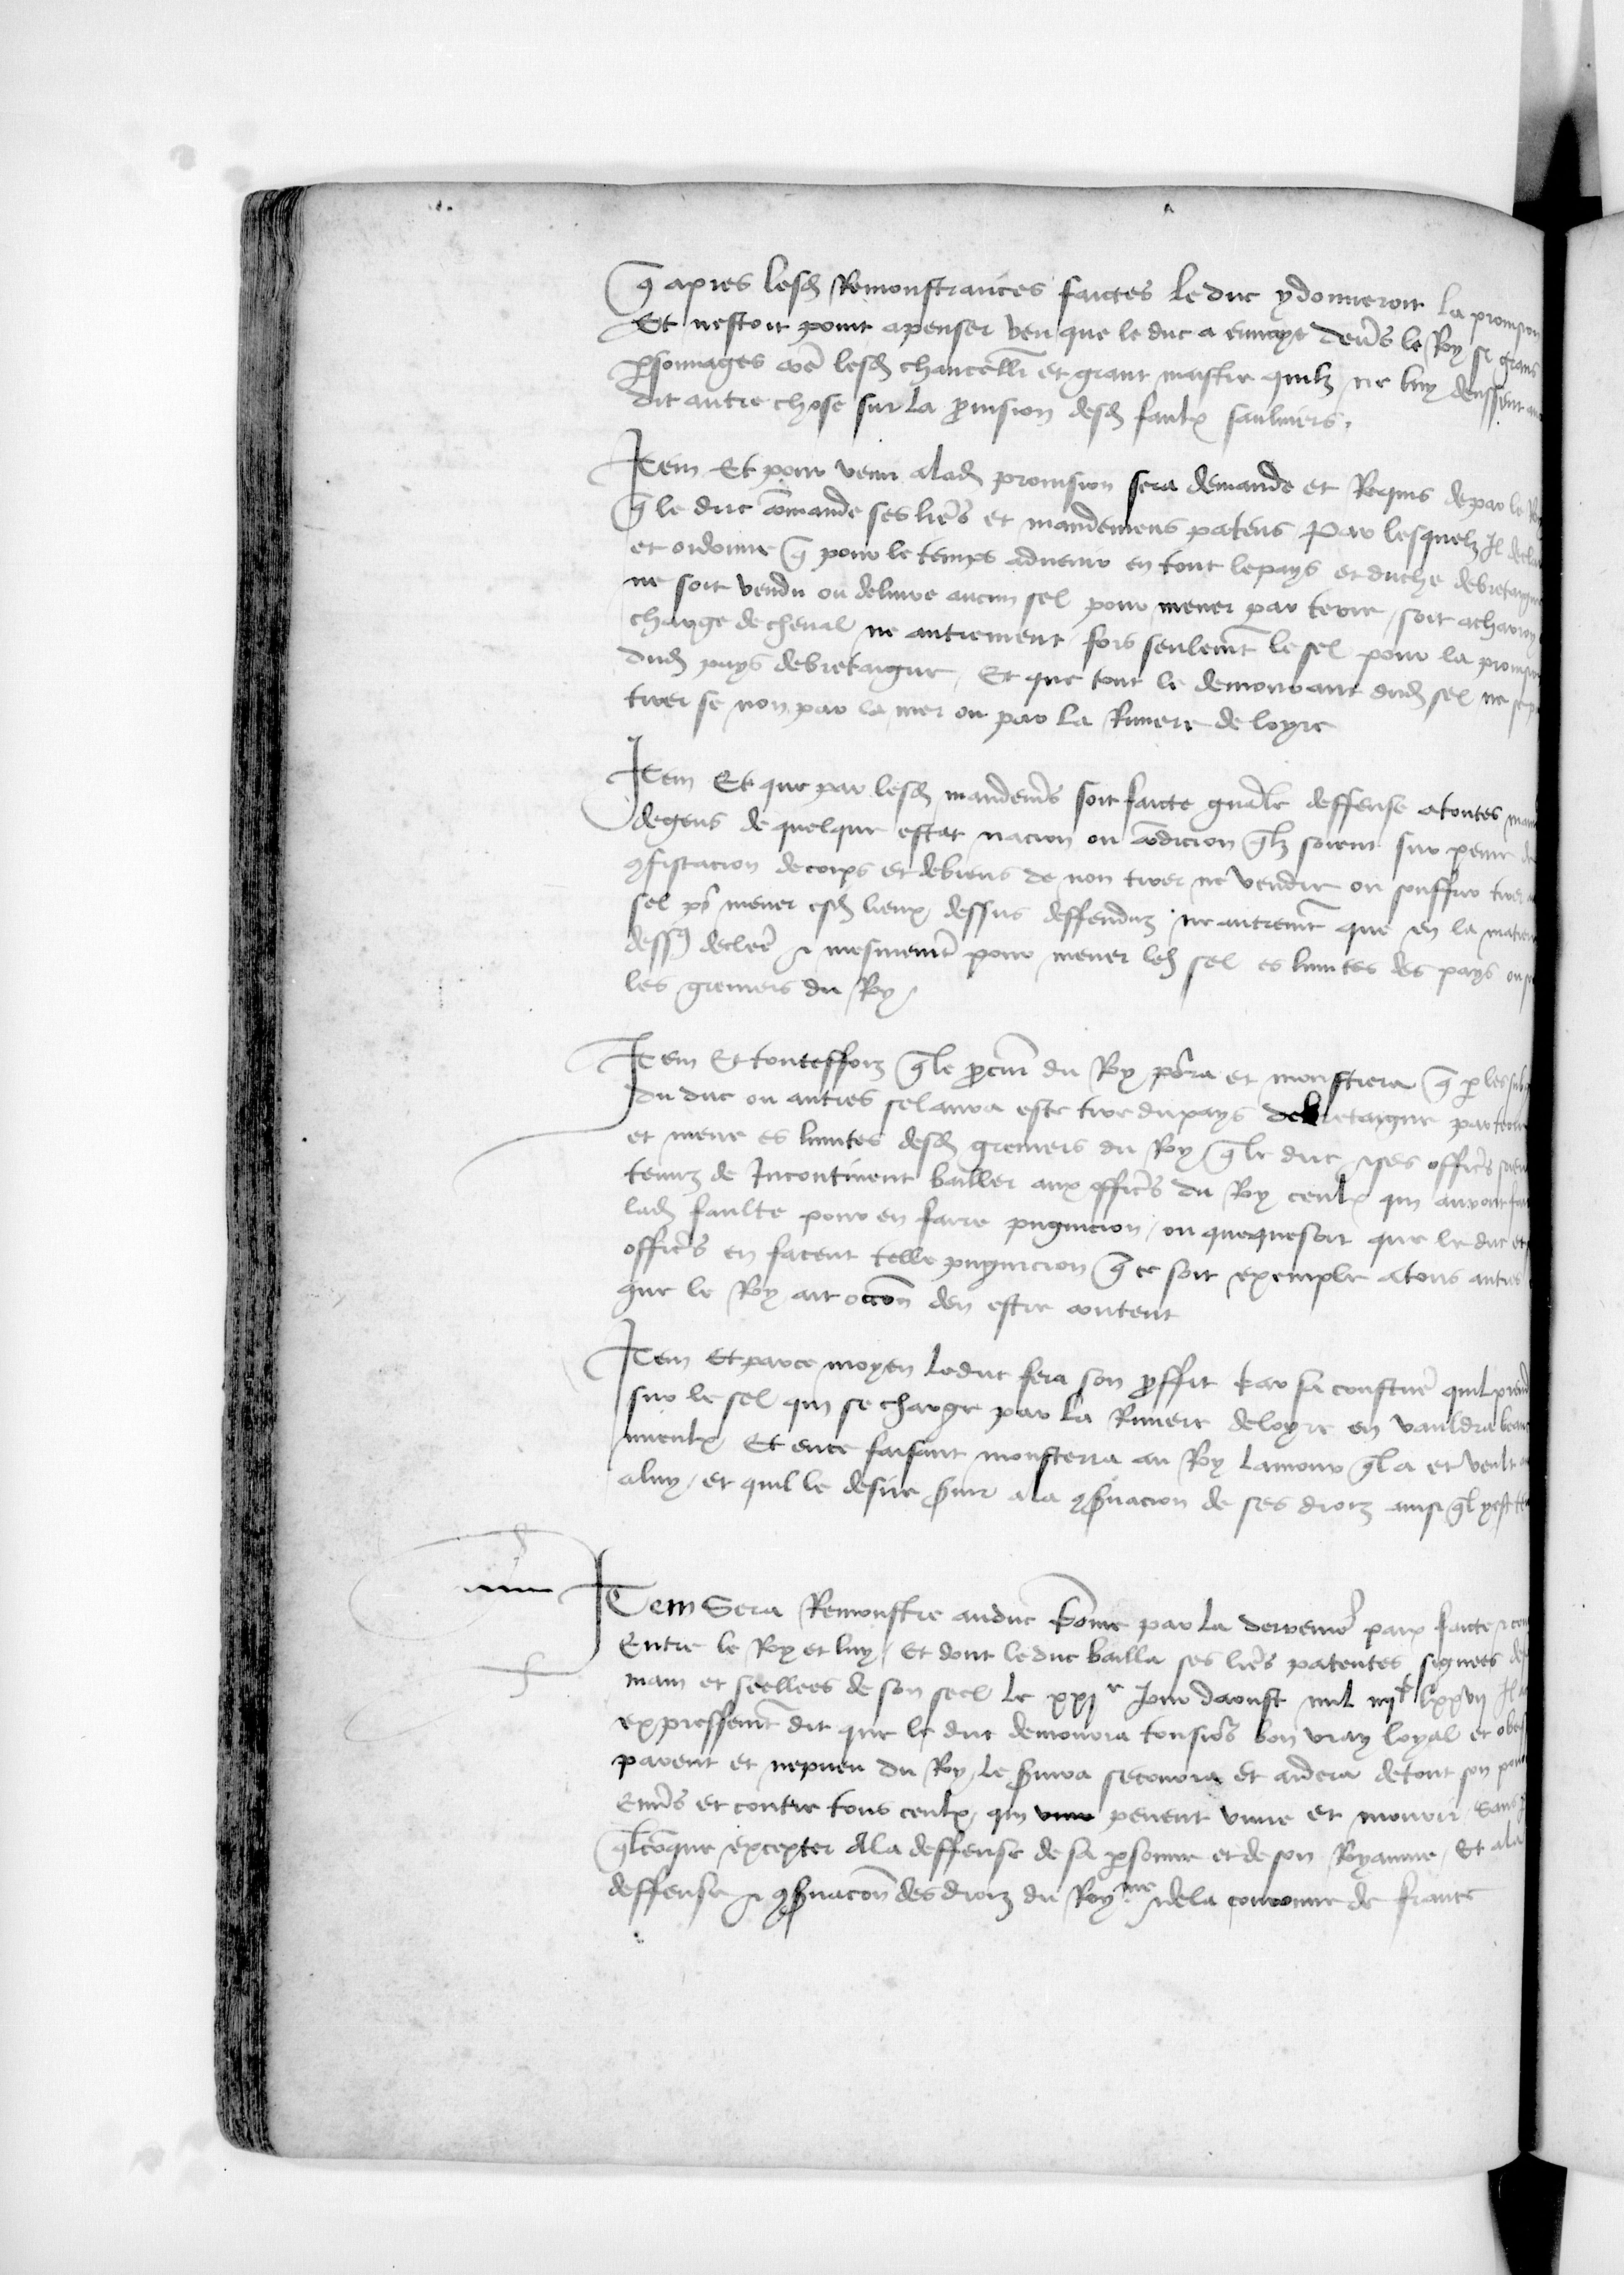 q̃ apres lesd Remonstrances faictes le duc y donneroit la provision
Et nestoit point a penser veu que le duc a envoye devs le Roy si grans
p̱sonnages cõe lesd chancellr̃ et grant maistre quilz ne luy deussent
dit autre chose sur la p̱vision desd faulx saulniers.
Item Et pour venir a lad provision sera demande et Requis de par le Roy
q̃ le duc cõmande ses lr̃es et mandemens patens Par lesquelz Il
et ordonne q̃ pour le temps advenir en tout le pays et duche de bretaigne
ne soit vendu ou delivre aucun sel pour mener par terre soit a charroy
charge de cheval ne autrement fors seulemt le sel pour la
dud pays de bretaigne, Et que tout le demourant dud sel ne
tirer se non par la mer ou par la Riviere de loyre
Item Et que par lesd mandemẽs soit faicte gnãlle deffense a toutes
de gens de quelque estat nacion ou cõdicion q̃lz soient sur peine de
9fiscacion de corps et de biens de non tirer ne vendre ou souffrir tirer
sel po^r mener esd lieux dessus deffenduz ne autremt que en la
dess9 declere & mesmemt pour mener led sel es limites des pays
les greniers du Roy
Item Et touteffoiz q̃ le p̱cur̃ du Roy po^rra et monstrera q̃ p̱ les
du duc ou autres sel aura este tire du pays de bretaigne par terre
et mene es limites desd greniers du Roy q̃ le duc & ses offic̃s
tenuz de Incontinent bailler aux offic̃s du Roy ceulx qui auront
lad faulte pour en faire pugnicion, ou quequesoit que le duc et
offic̃s en facent telle pugnicion q̃ ce soit exemple a tous autres
que le Roy ait occõn den estre content
Item Et par ce moyen le duc fera son p̱ffit kar sa coustũe quil
sur le sel qui se charge par la Riviere de loyre en vauldra
mieulx Et en ce faisant monsterra au Roy lamour q̃l a et veult
a luy, et quil le desire s̃vir a la 9s̃vacion de ses droiz ainsi q̃l y est
Item Sera Remonstre au duc kõme par la dervenier̃ paix faicte &
Entre le Roy et luy, Et dont le duc bailla ses lr̃es patentes signees
main et seellees de son seel le xxj^e jour daoust mil iiij^c lxxvij Il
expressemt dit que le duc demoura tousio^rs bon vray loyal et
parent et nepveu du Roy, le s̃vira secourra et aidera de tout son
Envs et contre tous ceulx qui peuent vivre et mourir sans
q̃lcõque excepter A la deffense de sa p̱sonne et de son Royaume, Et a la
deffense & 9s̃vacõn des droiz du Roy^me & de la couronne de france